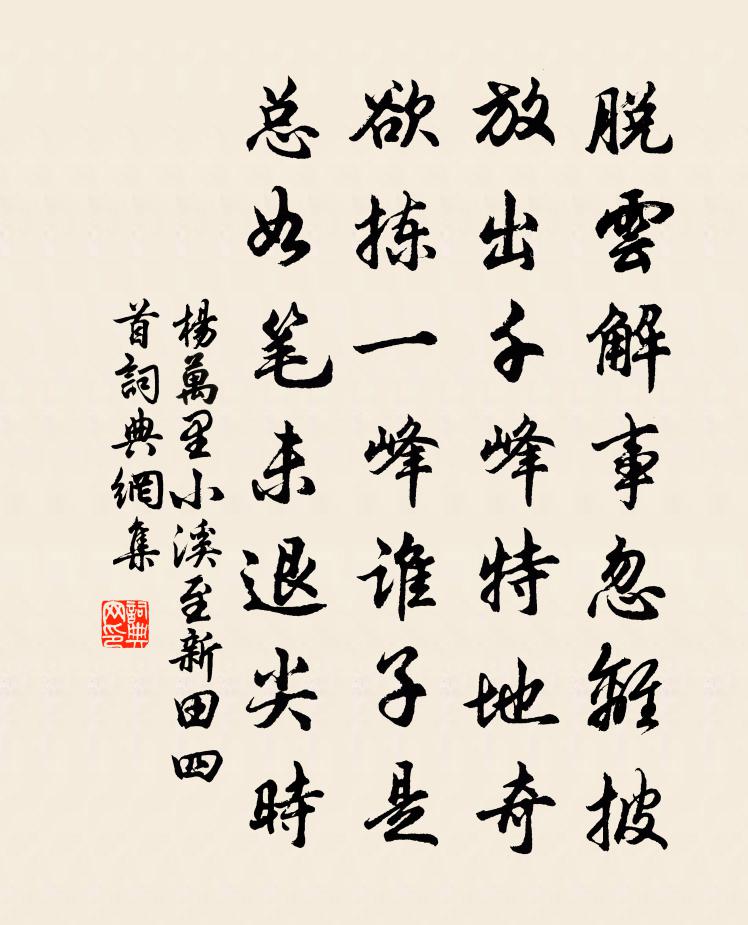 脱雲解事忽離披
放出千峰特地奇
欲拣一峰谁子是
总如笔未退尖時
楊萬里小溪至新田四
首詞典網集
詞典网印